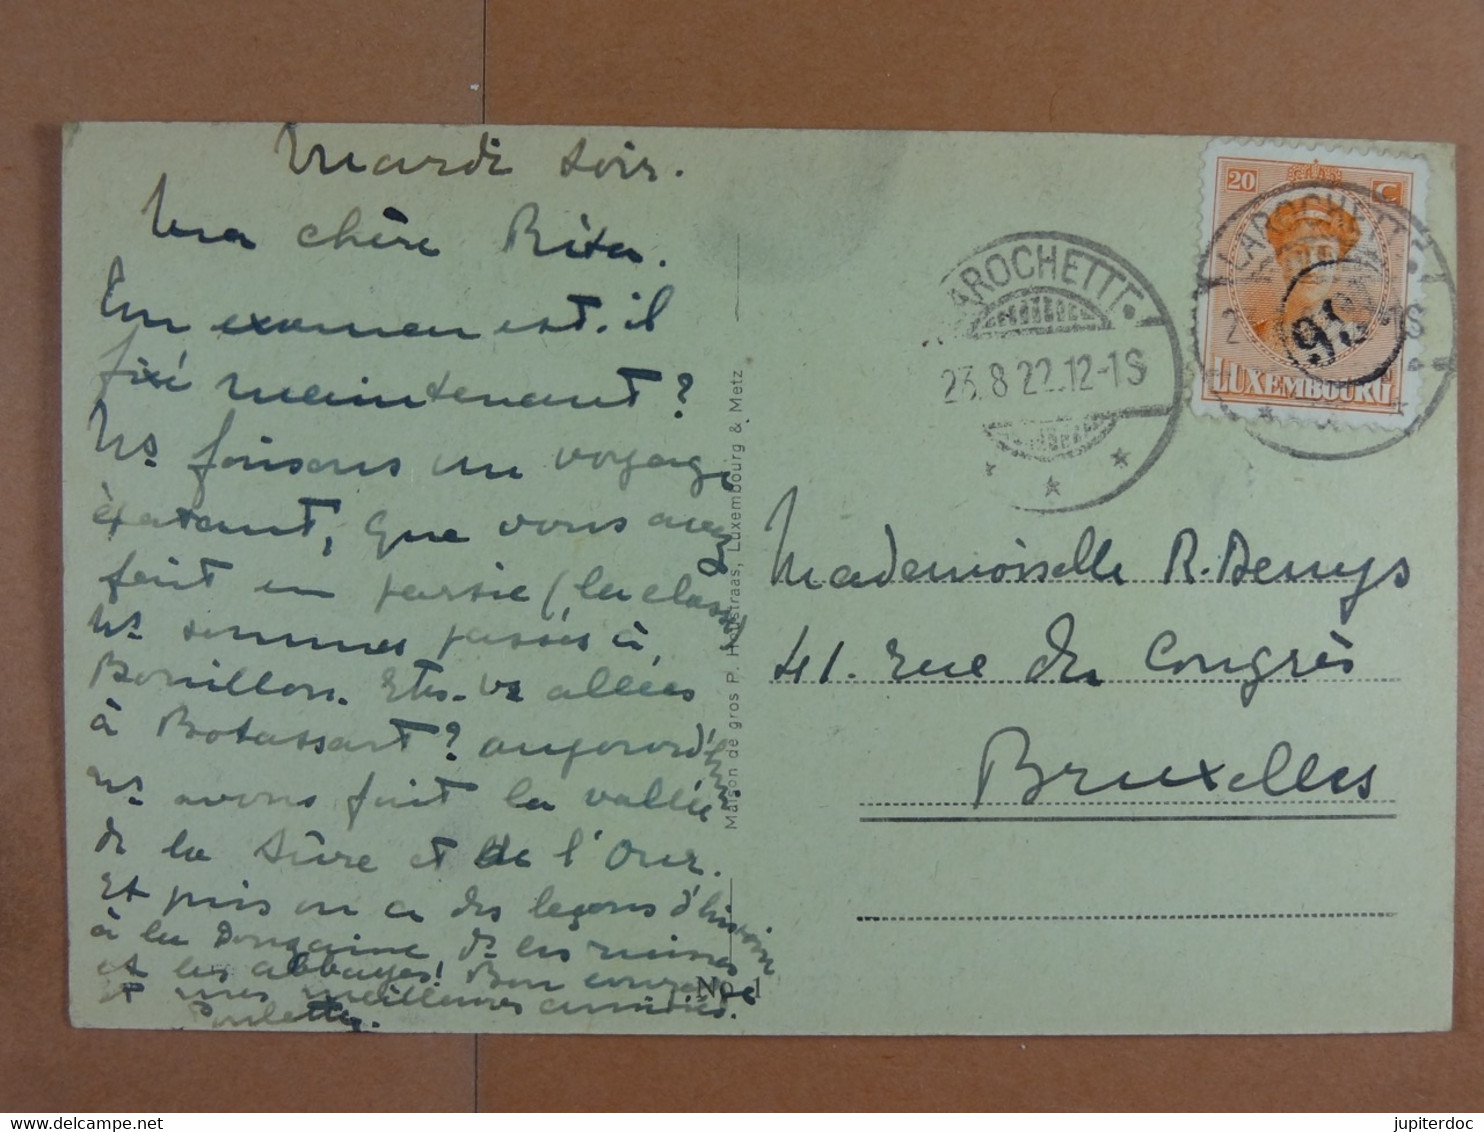 Mardi soir.
Ma chère Rita.
Ton examen est-il
fixé maintenant?
Ns faisons un voyage
épatant, que vous avez
fait en partie (la classe)
Ns sommes passés à
Bouillon. Etes-vs allées
à Botassart? aujourd'hui
ns avons fait la vallée
de la Sûre et de l'Our.
Et puis on a des leçons d'histoire
à la douzaine de les ruines
et les abbayes! Bon courage
et mes meilleures amitiés.
Paulette.
Maison de gros P. Houstraas, Luxembourg & Metz
No. 1
LAROCHETTE
23.8.22.12-1S
20 C
LUXEMBOURG
LAROCHETTE
91
Mademoiselle R. Denys
41. rue du Congrès
Bruxelles
jupiterdoc